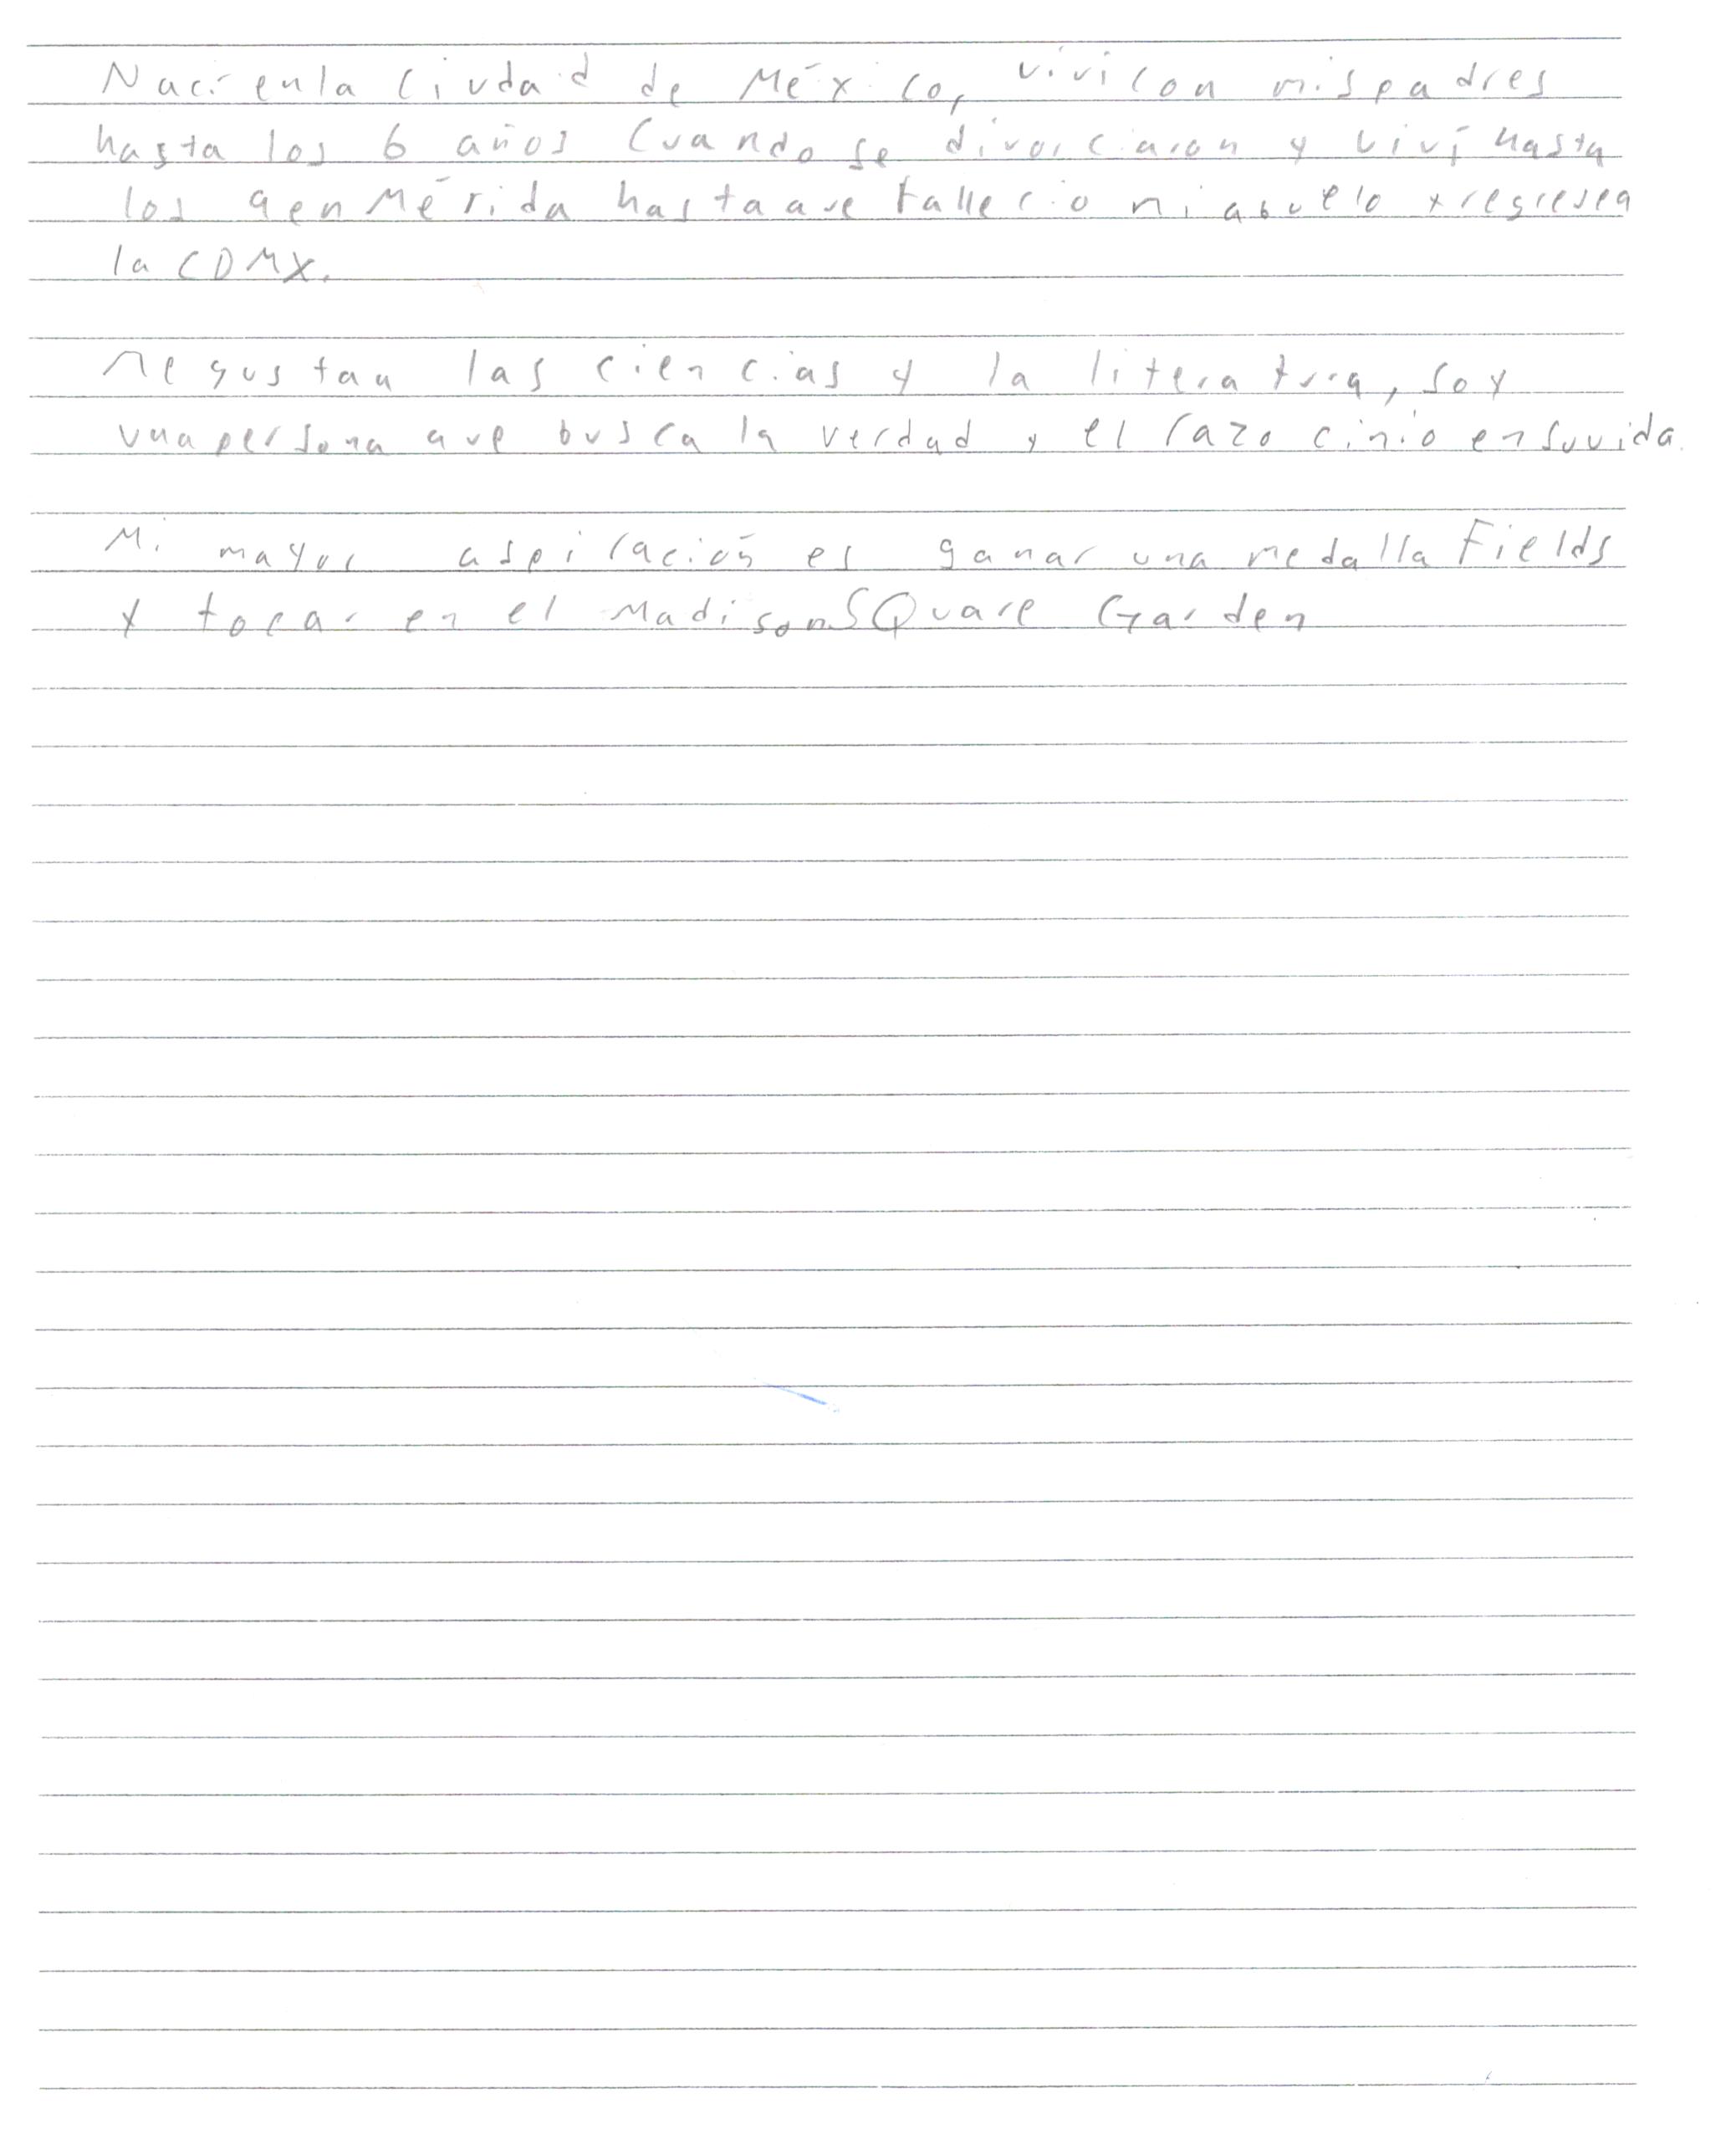 Nací en la Ciudad de México, viví con mis padres
hasta los 6 años cuando se divorciaron y viví hasta
los 9 en Mérida hasta que fallecio mi abuelo y regrese a
la CDMX.
Me gustan las ciencias y la literatura, soy
una persona que busca la verdad y el razocinio en su vida.
Mi mayor aspiración es ganar una medalla Fields
y tocar en el Madison SQuare Garden